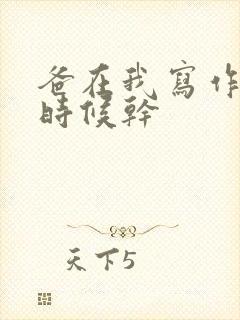 爸在我寫作
時候幹
天下5